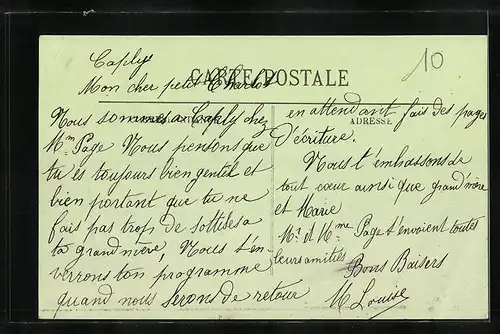 10
Caply
CARTE POSTALE
Mon cher petit Charlot
Nous sommes a Caply chez
Mm Page Nous pensons que
tu es toujours bien gentil et
bien portant que tu ne
fais pas trop de sottises a
ta grand mère, Nous t'en-
verrons ton programme
quand nous serons de retour
en attendant fais des pages
ADRESSE
d'écriture.
Nous t'embrassons de
tout cœur ainsi que grand'mère
et Marie
Mr et Mme Page t'envoient toutes
leurs amitiés
Bons Baisers
M Louise